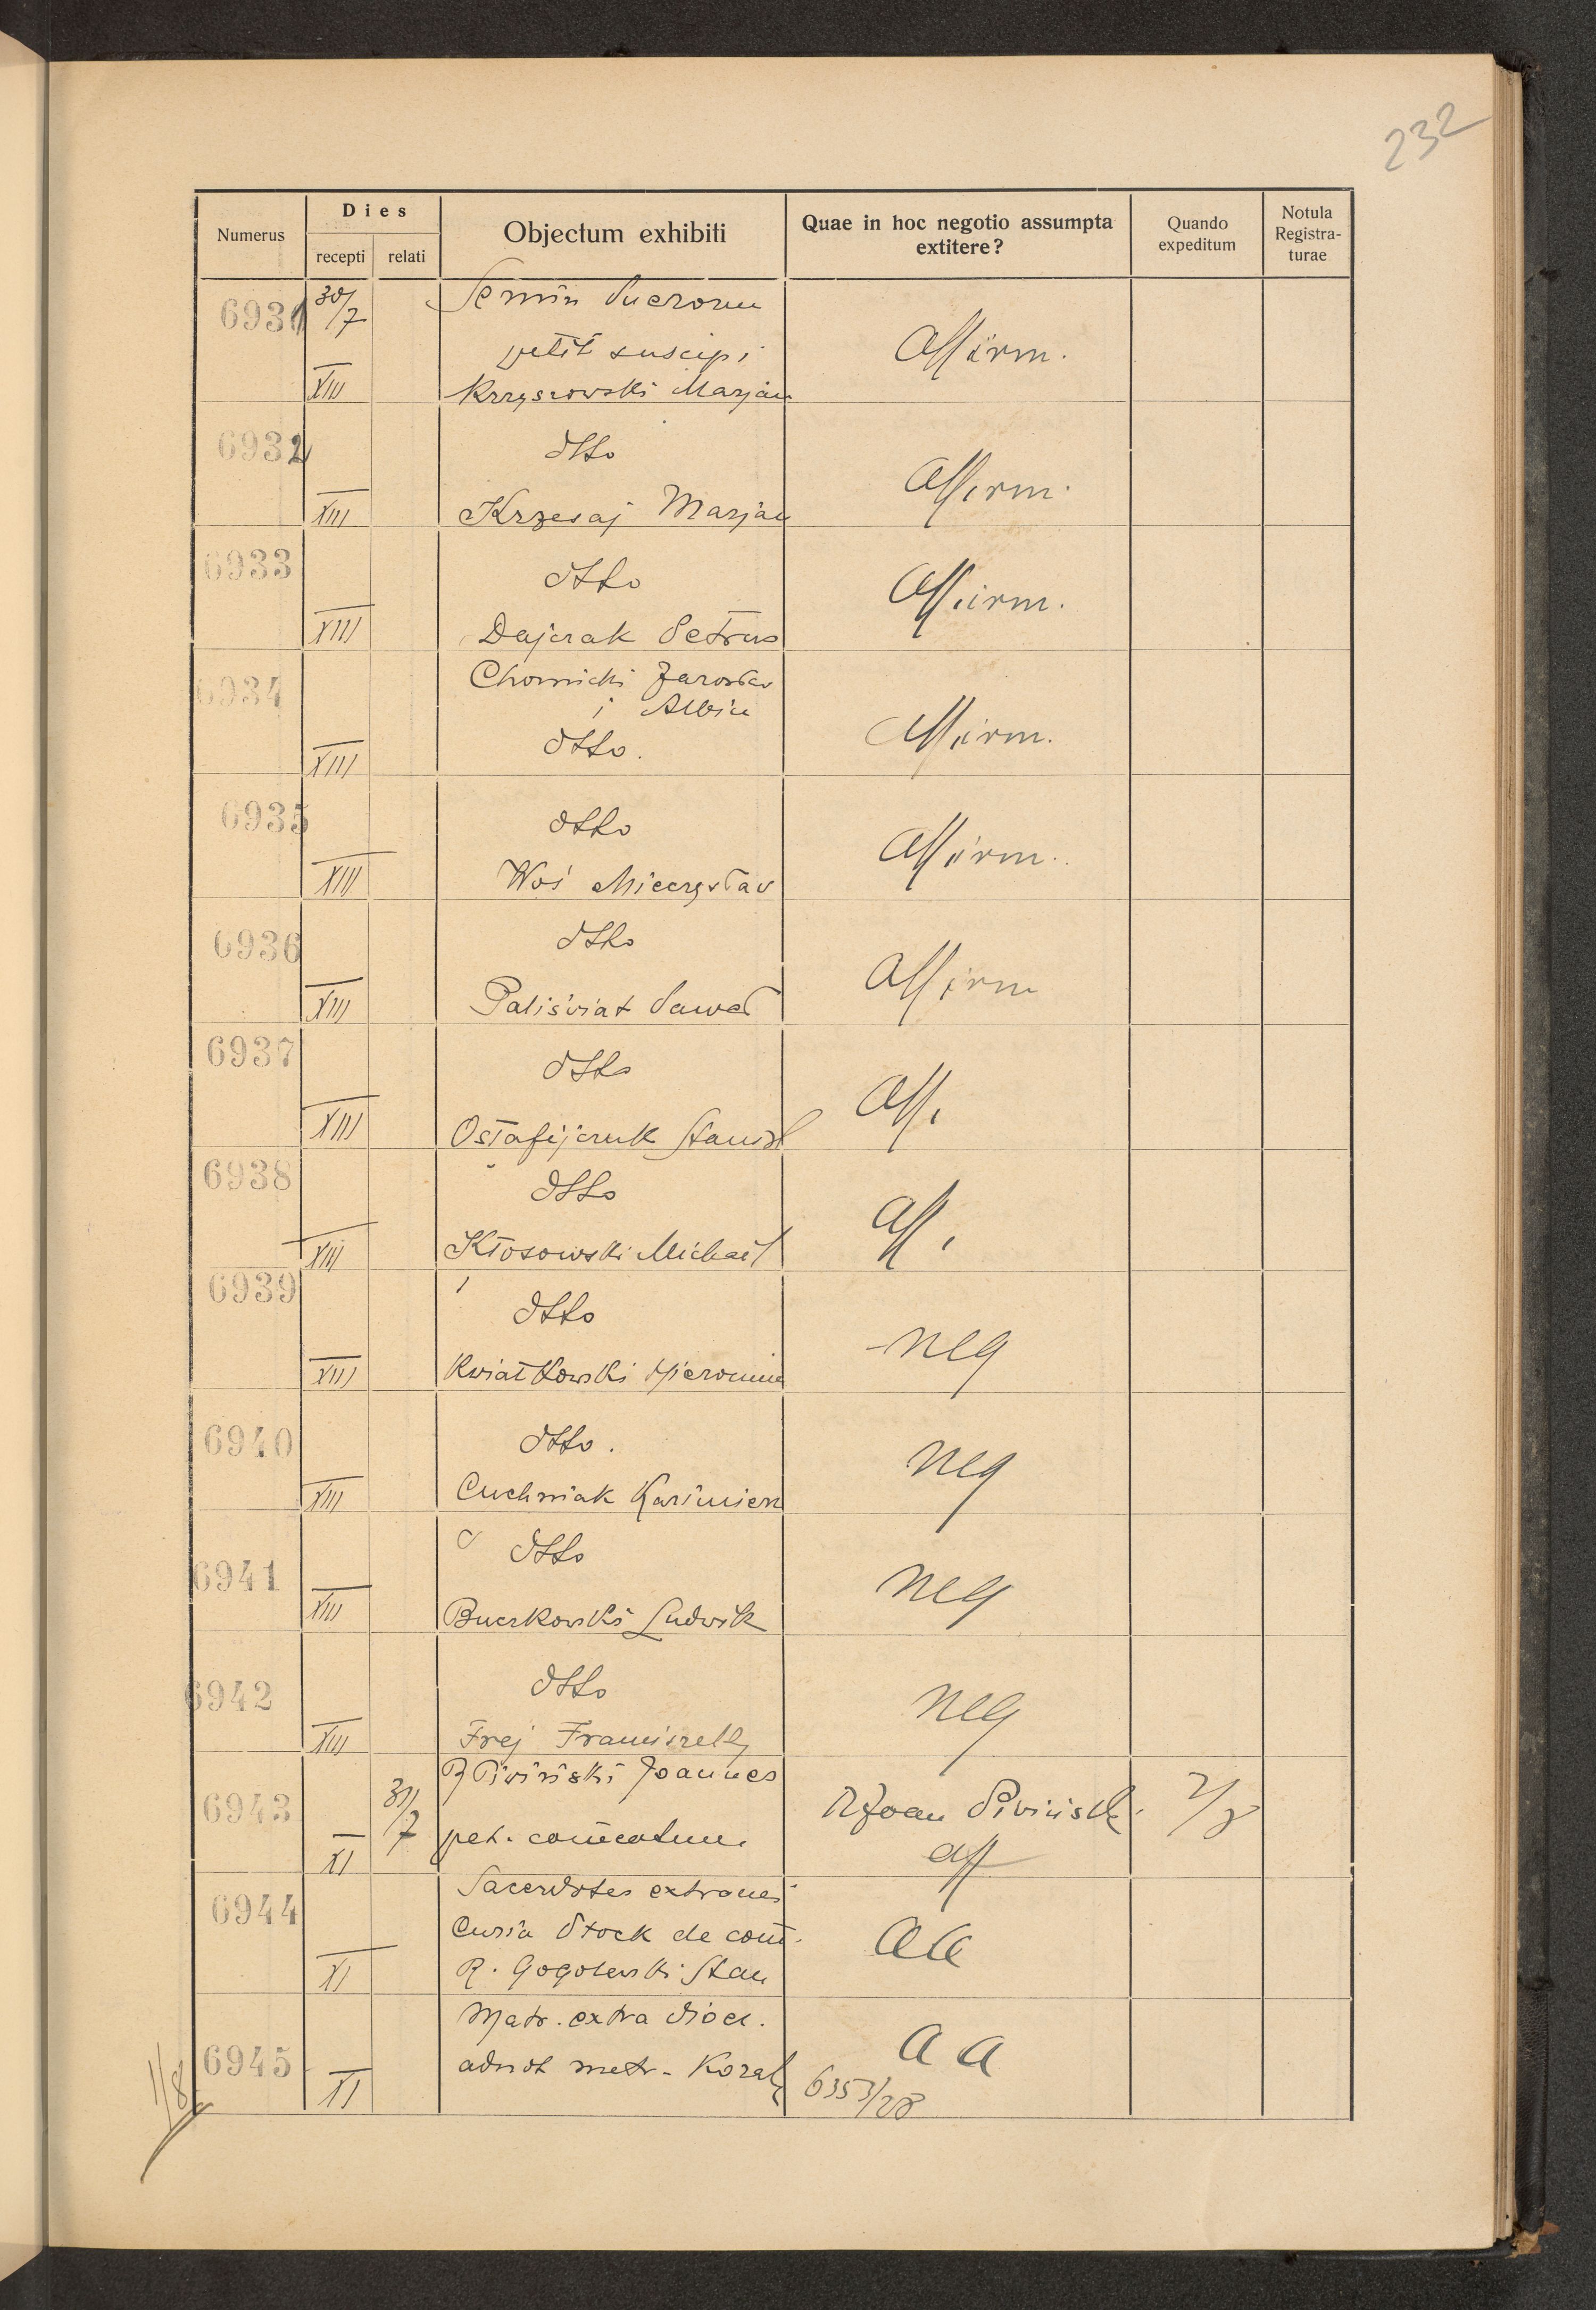 232
Numerus
Dies
recepti
relati
Objectum exhibiti
Quae in hoc negotio assumpta
extitere?
Quando
expeditum
Notula
Registra-
turae
6931
30/7
XIII
Semin Puerorum
petit suscipi
Krzyszowski Marjan
Affirm.
6932
XIII
dtto
Krzesaj Marjan
Affirm.
6933
XIII
dtto
Dajczak Petrus
Affirm.
6934
XIII
Chomicki Jarosław
i Albin
dtto.
Affirm.
6935
XIII
dtto
Woś Mieczysław
Affirm.
6936
XIII
dtto
Paliświat Paweł
Affirm
6937
XIII
dtto
Ostafijczuk Stanisł
Aff.
6938
XIII
dtto
Kłosowski Michał
Aff.
6939
XIII
dtto
Kwiatkowski Hieronim
neg
6940
XIII
dtto.
Cuchniak Kazimierz
neg
6941
XIII
dtto
Buczkowski Ludwik
neg
6942
XIII
dtto
Frej Franciszek
neg
6943
XI
31/7
R Piwiński Joannes
pet. commeatum
R Joan Piwiński
aff
2/8
6944
XI
Sacerdotes extranei
Curia Płock de com.
R. Gogolewski Stan
aa
6945
XI
Matr. extra dioec.
adnot metr. Kozak
aa
6353/28
1/8